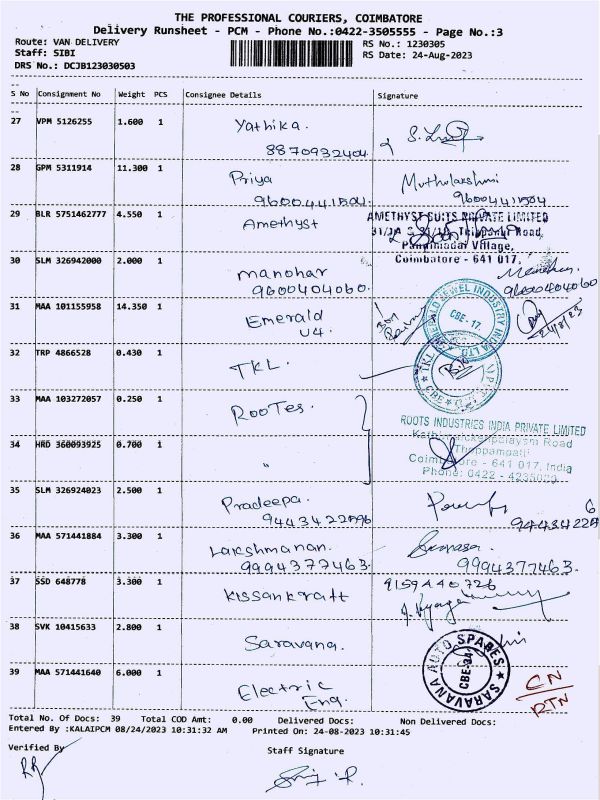 THE PROFESSIONAL COURIERS, COIMBATORE
Delivery Runsheet - PCM - Phone No.:0422-3505555 - Page No.:3
Route: VAN DELIVERY RS No.: 1230305
Staff: SIBI RS Date: 24-Aug-2023
DRS No.: DCJB123030503
S No Consignment No Weight PCS Consignee Details Signature
27 VPM 5126255 1.600 1 Yathika.
8870932404
28 GPM 5311914 11.300 1 Priya Muthulakshmi
9600441504. 9600441504
29 BLR 5751462777 4.550 1 Amethyst AMETHYST SUITS PRIVATE LIMITED
Road,
Village,
Coimbatore - 641 017.
30 SLM 326942000 2.000 1 manohar
9600404060. 9600404060
31 MAA 101155958 14.350 1 Emerald
U4. EMERALD JEWEL INDUSTRY INDIA LTD
CBE - 17.
24/8/23
32 TRP 4866528 0.430 1 TKL. TKL CBE
33 MAA 103272057 0.250 1 ROOTES. ROOTS INDUSTRIES INDIA PRIVATE LIMITED
Road
Thoppampatti
34 HRD 360093925 0.700 1 " Coimbatore - 641 017, India
Phone: 0422 - 4235000
35 SLM 326924023 2.500 1 Pradeepa.
36 MAA 571441884 3.300 1 Lakshmanan.
9994377463. 9994377463.
37 SSD 648778 3.300 1 Kissankraft 9159440726
38 SVK 10415633 2.800 1 Saravana. SARAVANA AUTO SPARES
CBE-34
39 MAA 571441640 6.000 1 Electric
Eng. CN
RTN
Total No. Of Docs: 39 Total COD Amt: 0.00 Delivered Docs: Non Delivered Docs:
Entered By :KALAIPCM 08/24/2023 10:31:32 AM Printed On: 24-08-2023 10:31:45
Verified By Staff Signature